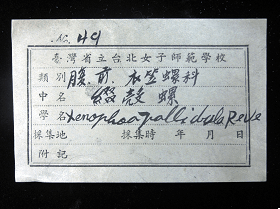 No. 49
臺灣省立台北女子師範學校
類別 腹足 衣笠螺科
中名 綴殼螺
學名 Xenophora pallidula Reeve
採集地 採集時 年 月 日
附記